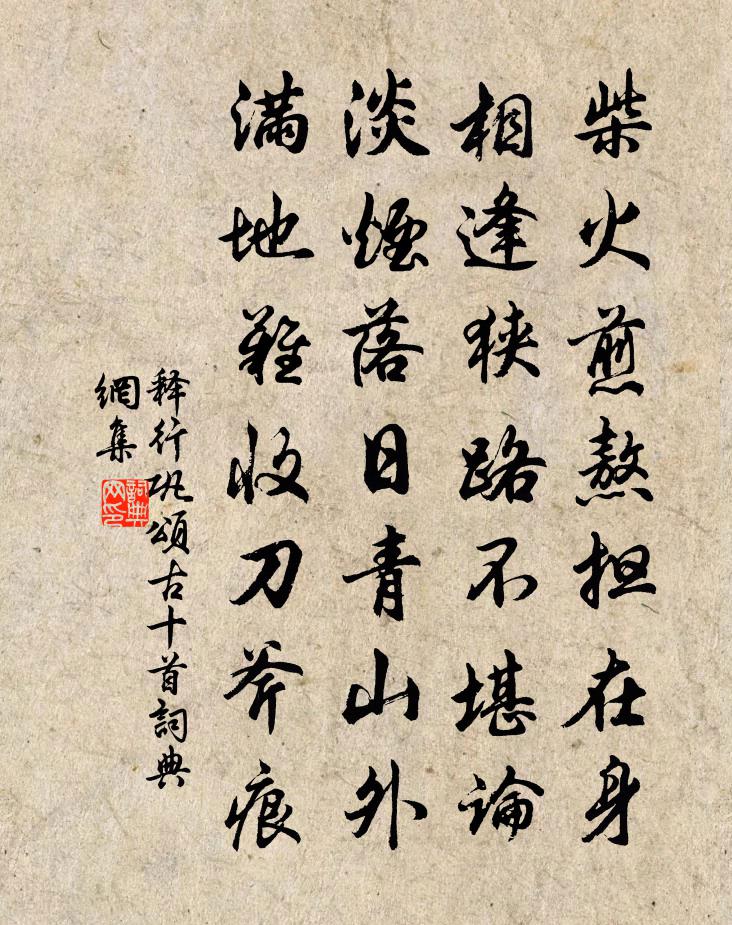 柴火煎熬担在身
相逢狭路不堪论
淡烟落日青山外
满地难收刀斧痕
释行巩颂古十首詞典
網集
詞典
网印